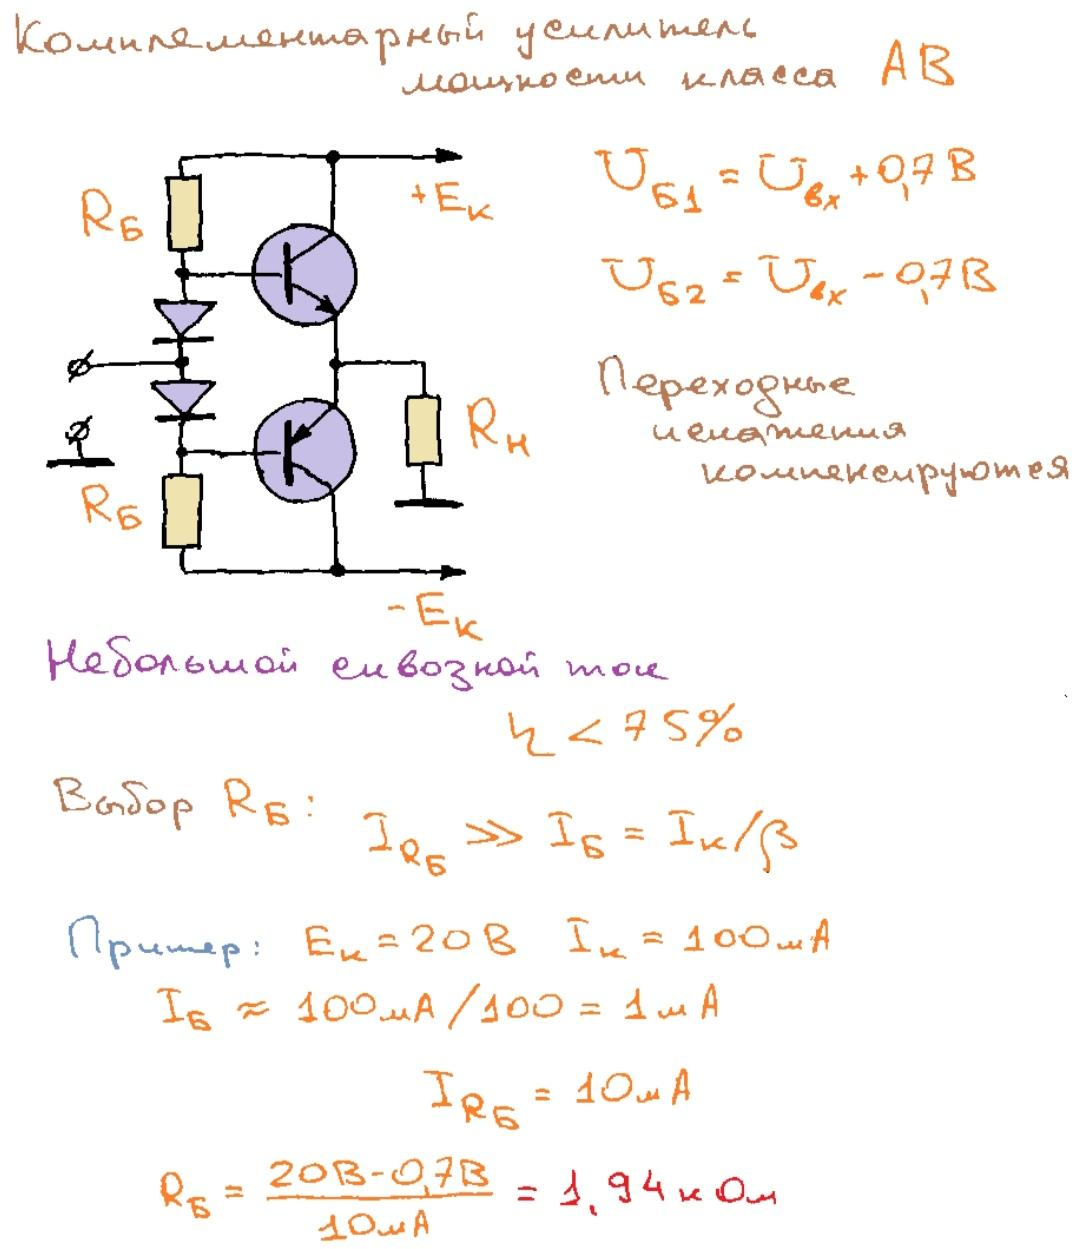 Комплементарный усилитель
мощности класса АВ
+Eк
RБ
UБ1 = Uвх + 0,7 В
UБ2 = Uвх - 0,7 В
Переходные
искажения
компенсируются
Rн
RБ
-Eк
Небольшой сквозной ток
η < 75%
Выбор RБ: IRБ >> IБ = Iк/β
Пример: Eк = 20 В Iк = 100 мА
IБ ≈ 100 мА/100 = 1 мА
IRБ = 10 мА
RБ = (20В - 0,7В)/10мА = 1,94 кОм